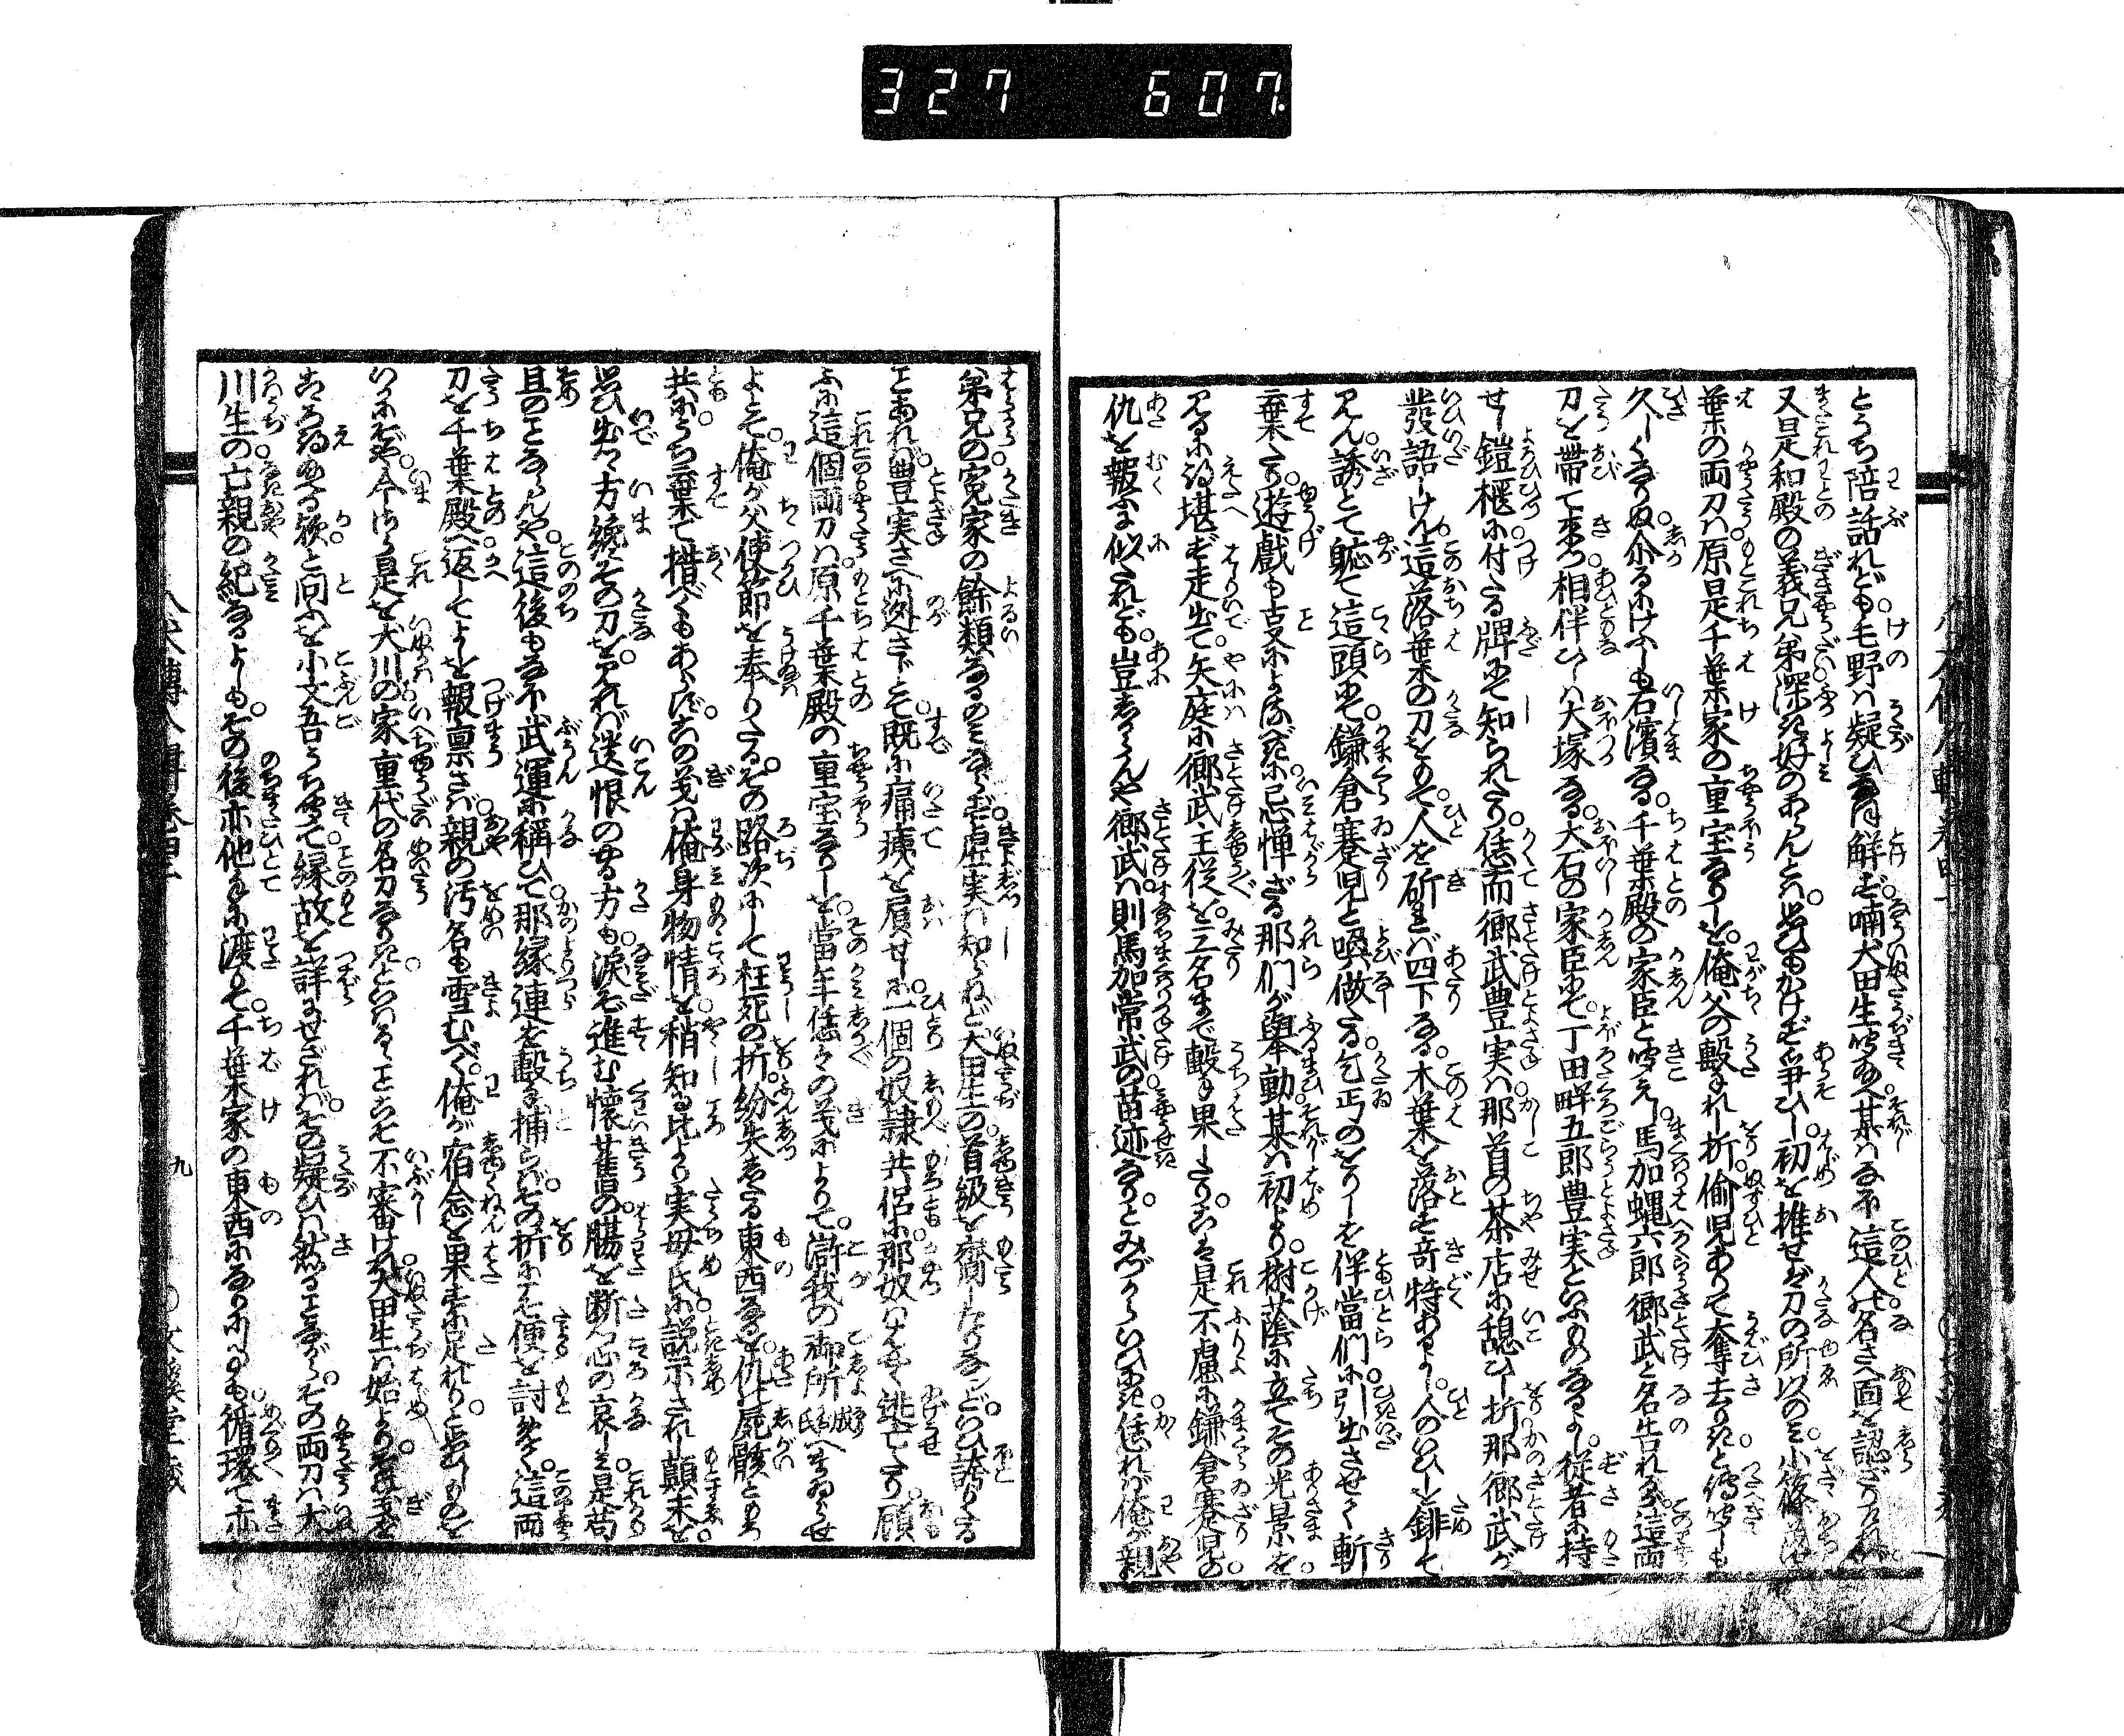 327 607
とうち陪話れども毛野は疑ひなほ解ず喃犬田生聞給へ某はなほ這人の名さへ面を認ざりければ
又是和殿の義兄弟深き好のあらんとは思ひもかけず爭ひし初を推せば刀の所以のみ小篠落
葉の両刀は原是千葉家の重宝なりしを俺父の撃れし折偸児ありて奪去りきと傳聞しも
久しくなりぬ介るにけふしも石濱なる千葉殿の家臣と聞えし馬加蝿六郎郷武と名告れるが這両
刀を帯て来つ相伴ひしは大塚なる大石の家臣にて丁田畔五郎豊実といふものなるよし從者に持
せし鎧櫃に付たる牌にて知られたり恁而郷武豊実は那首の茶店に憩ひし折那郷武が
發語しけん這落葉の刀をもて人を斫れば四下なる木葉を落す竒特あるよし人のいひしを試て
見ん誘とて軈て這頭にて鎌倉蹇児と喚做たる乞丐のをりしを伴當們に引出させて斬
棄たり遊戯も古昔によるべきに忌憚ざる那們が舉動某は初より樹蔭に立てその光景を
見るに得堪ず走出て矢庭に郷武主従を三名まで撃果したりこは是不慮に鎌倉蹇児の
仇を報ふに似たれども豈あらんや郷武は則馬加常武の苗迹なりとみづからいひにき恁れば俺が親
弟兄の寃家の餘類なるのみならず虚実は知らねど犬田生の首級を齎したりなンどいひ誇りたる
ことあれば豊実さへに迯さじとて既に痛痍を屓せしに一個の奴隷共侶に那奴ははやく逃亡たり願
ふに這個両刀は原千葉殿の重宝なりしを當年恁々の義によりて滸我の御所成氏へまゐらせ
よとて俺が父使節を奉りたるその路次にして枉死の折紛失したる東西なるを仇の屍骸ともろ
共にうち棄て措べくもあらずこの義は俺身物情を稍知る比より実母氏に説示されし顛末を
思ひ出て方纔その刀を見れば送恨のやる方も涙ぞ進む懐舊の腸を断心の哀しみ是苟
且のことならんや這後もなほ武運に稱ひて那縁連を撃も捕らばその折にこそ便を討めて這両
刀を千葉殿へ返してよしを報稟さば親の汚名も雪むべく俺が宿念を果すに足れりと思ひしものを
いかにぞや今はた是を犬川の家重代の名刀なりきといはるることこそ不審けれ犬田生は始よりこの義を
こころ得たる歟と問へを小文吾うち聞て縁故を詳にせざればその疑ひは然ることながらその両刀は犬
川生の亡親の紀なるよしもその後亦他手に渡りて千葉家の東西になりにしへるも循環て亦
九